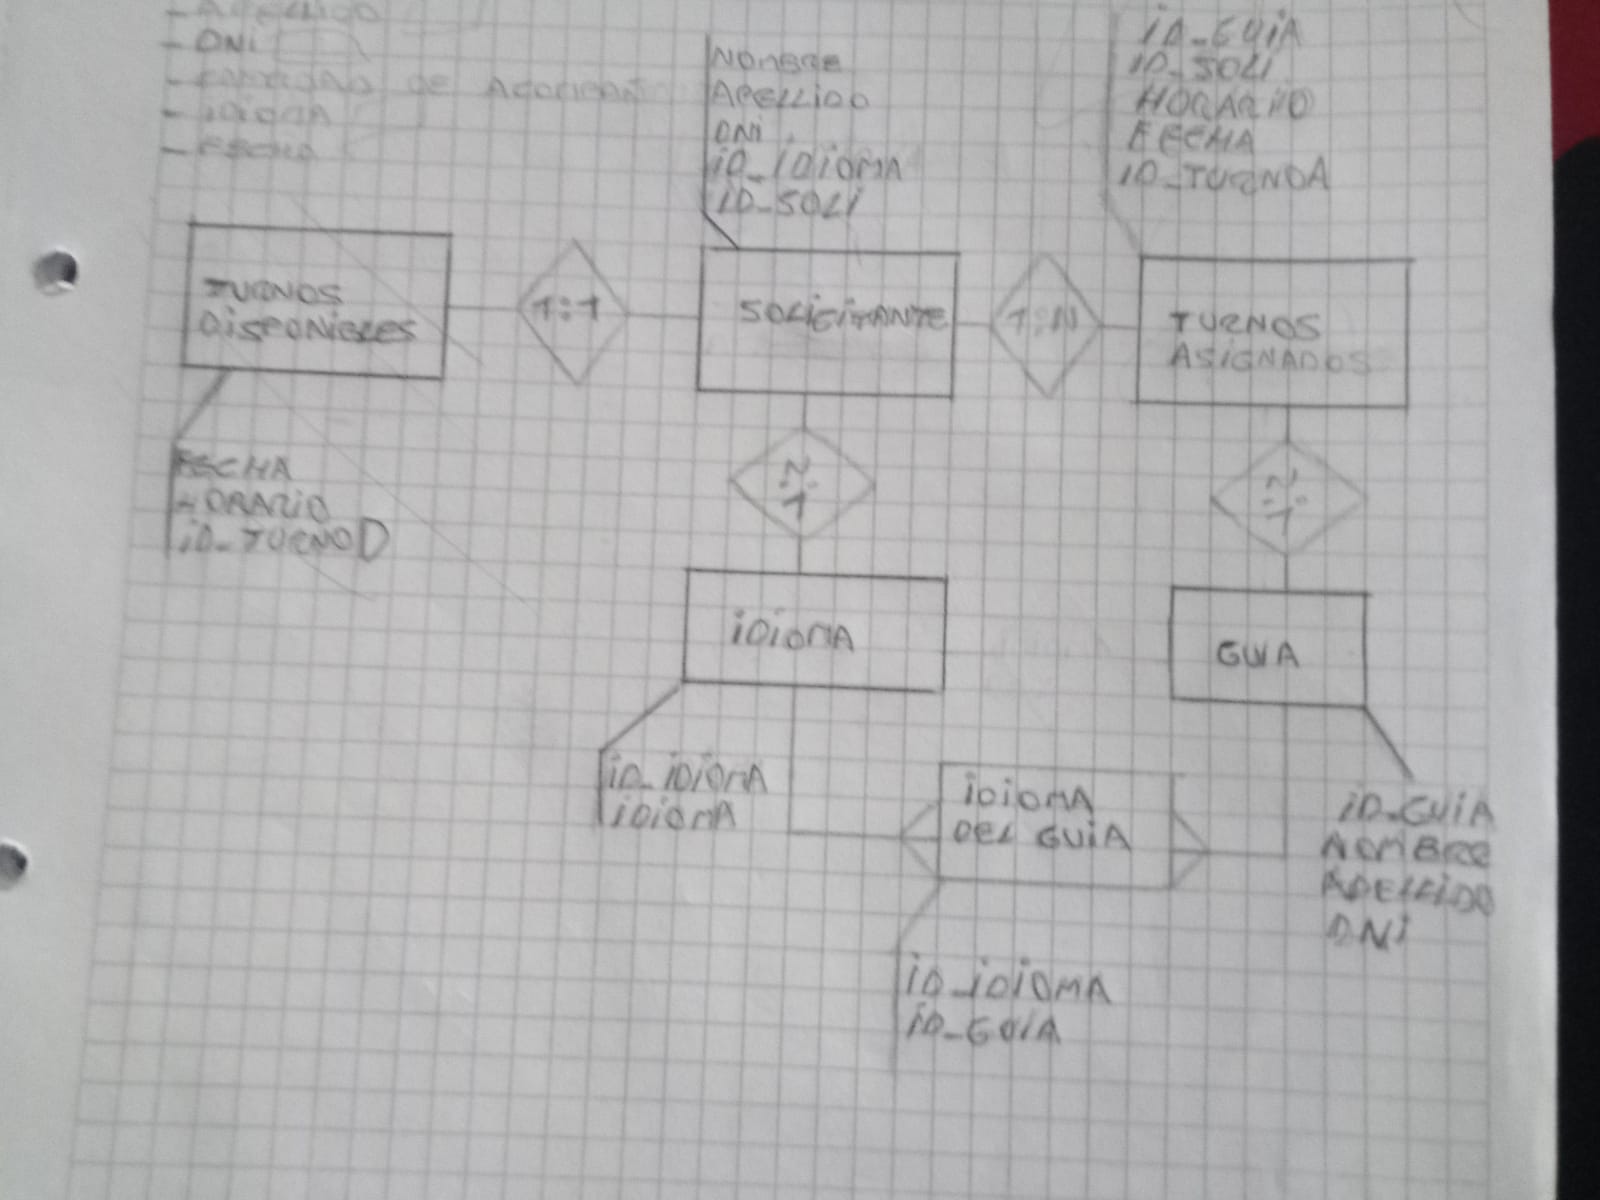 - APELLIDO
- DNI
- CANTIDAD DE
- IDIOMA
- FECHA
NOMBRE
APELLIDO
DNI
ID_IDIOMA
ID_SOLI
ID_GUIA
ID_SOLI
HORARIO
FECHA
ID_TURNOA
TURNOS
DISPONIBLES
1:1
SOLICITANTE
1:N
TURNOS
ASIGNADOS
FECHA
HORARIO
ID_TURNOD
N:1
N:1
IDIOMA
GUIA
ID_IDIOMA
IDIOMA
IDIOMA
DEL GUIA
ID_GUIA
NOMBRE
APELLIDO
DNI
ID_IDIOMA
ID_GUIA